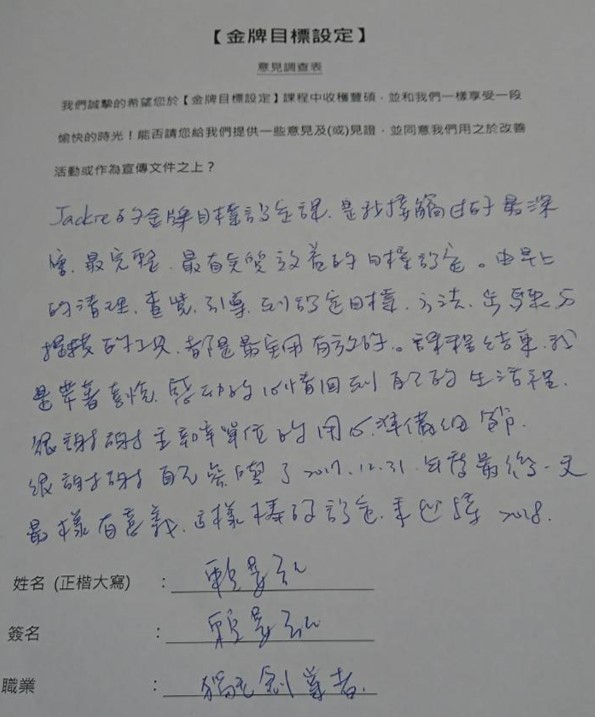 【金牌目標設定】
意見調查表
我們誠摯的希望您於【金牌目標設定】課程中收穫豐碩，並和我們一樣享受一段
愉快的時光！能否請您給我們提供一些意見及(或)見證，並同意我們用之於改善
活動或作為宣傳文件之上？
Jackie的金牌目標設定課，是我接觸過的最深
層、最完整、最有實質效益的目標設定。由早上
的清理、查覺、引導，到設定目標、方法、步驟與
工具，都是最實用有效的。課程結束，我
是帶著喜悅、感動的心情回到自己的生活裡。
很謝謝主辦單位的用心，準備細節。
很謝謝自己 了2017.12.31，年度最後一天
最有意義，這樣棒的設定，來 2018.
姓名 (正楷大寫) ：賴
簽名 ：賴
職業 ：創業者.